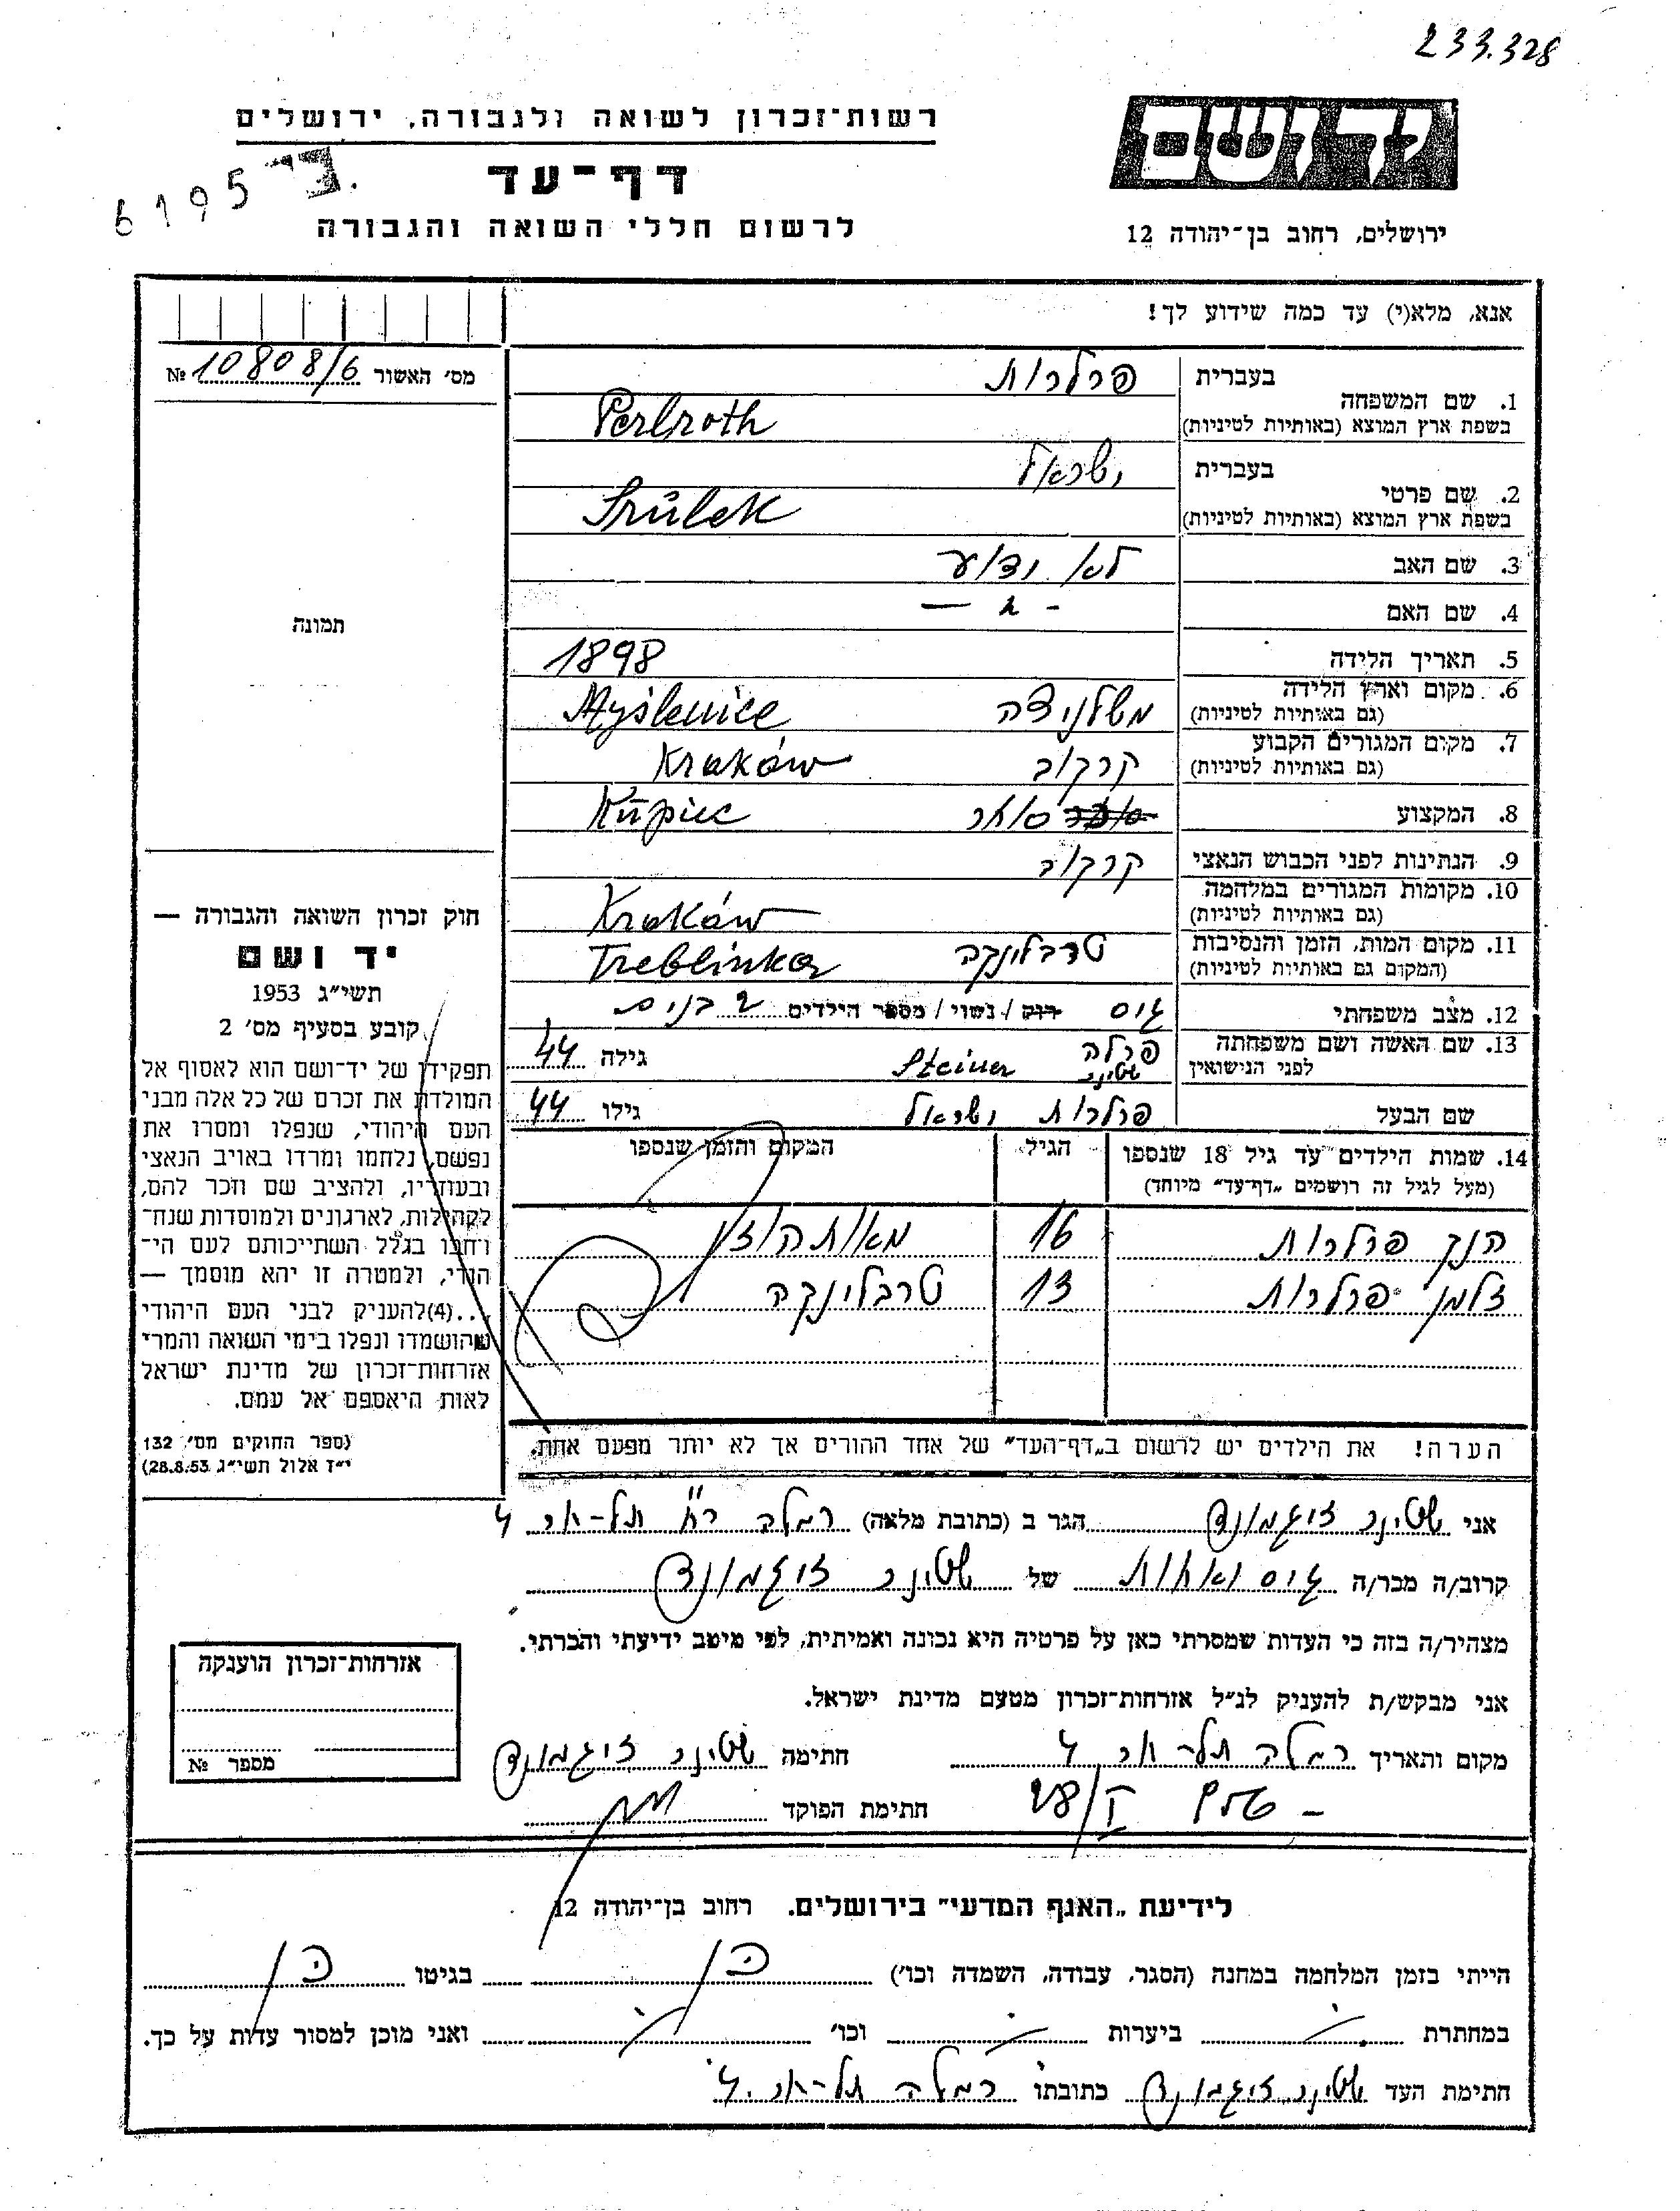 233.328
יד ושם
ירושלים, רחוב בן־יהודה 12
רשות־זכרון לשואה ולגבורה, ירושלים
דף־עד
לרשום חללי השואה והגבורה
6195
אנא, מלא(י) עד כמה שידוע לך!
מס׳ האשור 10808/6 №
1. שם המשפחה
בעברית פרלרות
בשפת ארץ המוצא (באותיות לטיניות) Perlroth
2. שם פרטי
בעברית ישראל
בשפת ארץ המוצא (באותיות לטיניות) Srulek
3. שם האב לא ידוע
4. שם האם - " -
5. תאריך הלידה 1898
6. מקום וארץ הלידה
(גם באותיות לטיניות) משלניצה Myślenice
7. מקום המגורים הקבוע
(גם באותיות לטיניות) קרקוב Kraków
8. המקצוע סוחר Kupiec
9. הנתינות לפני הכבוש הנאצי קרקוב
10. מקומות המגורים במלחמה
(גם באותיות לטיניות) Kraków
11. מקום המות, הזמן והנסיבות
(המקום גם באותיות לטיניות) טרבלינקה Treblinka
12. מצב משפחתי גיס רוק / נשוי / מספר הילדים 2 בנים
13. שם האשה ושם משפחתה
לפני הנישואין פרלה שטינר Steiner גילה 44
שם הבעל פרלרות ישראל גילו 44
14. שמות הילדים עד גיל 18 שנספו
(מעל לגיל זה רושמים „דף־עד״ מיוחד)
הגיל
המקום והזמן שנספו
הנק פרלרות 16 מאוטהוזן
זלמן פרלרות 13 טרבלינקה
הערה! את הילדים יש לרשום ב„דף־העד״ של אחד ההורים אך לא יותר מפעם אחת.
תמונה
חוק זכרון השואה והגבורה —
יד ושם
תשי״ג 1953
קובע בסעיף מס׳ 2
תפקידו של יד־ושם הוא לאסוף אל
המולדת את זכרם של כל אלה מבני
העם היהודי, שנפלו ומסרו את
נפשם, נלחמו ומרדו באויב הנאצי
ובעוזריו, ולהציב שם וזכר להם,
לקהילות, לארגונים ולמוסדות שנח־
רבו בגלל השתייכותם לעם הי־
הודי, ולמטרה זו יהא מוסמך —
...(4)להעניק לבני העם היהודי
שהושמדו ונפלו בימי השואה והמרי
אזרחות־זכרון של מדינת ישראל
לאות היאספם אל עמם.
(ספר החוקים מס׳ 132
י״ז אלול תשי״ג 28.8.53)
אני שטינר זיגמונד הגר ב (כתובת מלאה) רמלה רח׳ תל-אביב 4
קרוב/ה מכר/ה גיס ואחות של שטינר זיגמונד
מצהיר/ה בזה כי העדות שמסרתי כאן על פרטיה היא נכונה ואמיתית, לפי מיטב ידיעתי והכרתי.
אני מבקש/ת להעניק לנ״ל אזרחות־זכרון מטעם מדינת ישראל.
מקום ותאריך רמלה תל-אביב 4 חתימה שטינר זיגמונד
חתימת הפוקד
אזרחות־זכרון הוענקה
מספר №
לידיעת „האגף המדעי״ בירושלים. רחוב בן־יהודה 12
הייתי בזמן המלחמה במחנה (הסגר, עבודה, השמדה וכו׳) כן בגיטו כן
במחתרת ביערות וכו׳ ואני מוכן למסור עדות על כך.
חתימת העד שטינר זיגמונד כתובתו רמלה תל-אביב 4